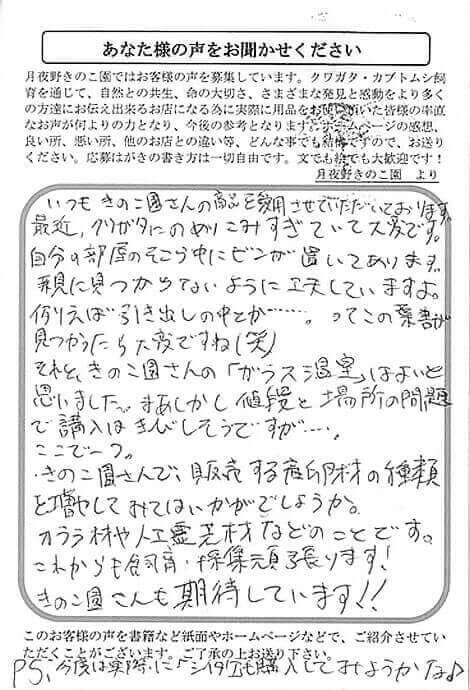 あなた様の声をお聞かせください
月夜野きのこ園ではお客様の声を募集しています。クワガタ・カブトムシ飼
育を通じて、自然との共生、命の大切さ、さまざまな発見と感動をより多く
の方達にお伝え出来るお店になる為に実際に用品をお使い頂いた皆様の率直
なお声が何よりの力となり、今後の参考となります。ホームページの感想、
良い所、悪い所、他のお店との違い等、どんな事でも結構ですので、お送り
ください。応募はがきの書き方は一切自由です。文でも絵でも大歓迎です！
月夜野きのこ園 より
いつもきのこ園さんの商品を愛用させていただいております。
最近、クワガタにのめりこみすぎていて大変です。
自分の部屋のそこら中にビンが置いてあります。
親に見つからないように工夫していますよ。
例えば引き出しの中とか……。ってこの葉書が
見つかったら大変ですね(笑)
それと、きのこ園さんの「ガラス温室」はよいと
思いました。まあしかし値段と場所の問題
で購入はきびしそうですが…。
ここで一つ。
・きのこ園さんで、販売する産卵材の種類
を増やしてみてはいかがでしょうか。
カワラ材や人工霊芝材などのことです。
これからも飼育・採集頑張ります！
きのこ園さんも期待しています！！
このお客様の声を書籍など紙面やホームページなどで、ご紹介させていた
ただくことがございます。ご了承の上お送り下さい。
PS、今度は実際に「シイタケ」も購入してみようかな♪